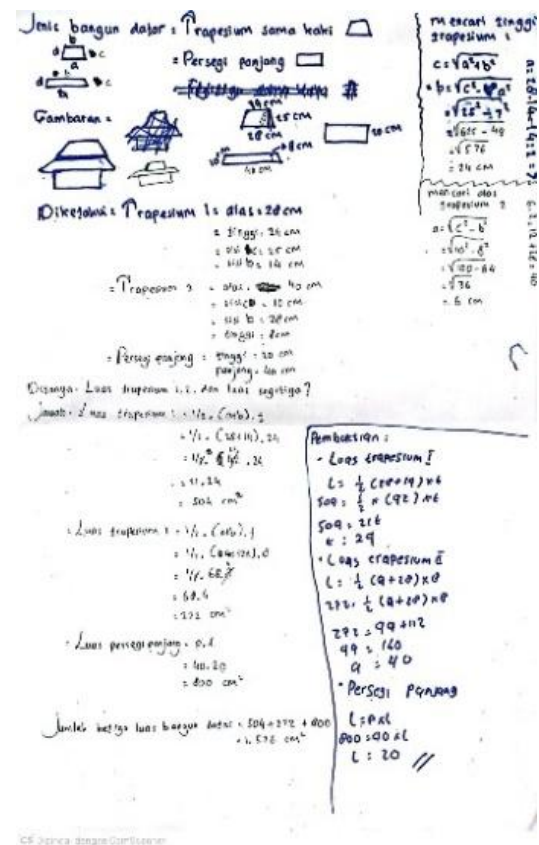 Jenis bangun datar = Trapesium sama kaki
= Persegi panjang
Gambaran =
14 cm
25 cm
28 cm
20 cm
40 cm
Diketahui = Trapesium 1 = alas = 28 cm
= tinggi = 24 cm
= sisi c = 25 cm
= sisi b = 14 cm
= Trapesium 2 = alas = 40 cm
= 10 cm
= sisi b = 28 cm
= tinggi = 8 cm
= Persegi panjang = tinggi = 20 cm
panjang = 40 cm
Ditanya = Luas trapesium 1, 2, dan luas segitiga?
Jawab = Luas trapesium 1 = 1/2 . (a+b) . t
= 1/2 . (28+14) . 24
= 504 cm²
= Luas trapesium 2 = 1/2 . (a+b) . t
= 1/2 . (40+28) . 8
= 68.4
= 272 cm²
- Luas persegi panjang = p.l
= 40.20
= 800 cm²
Jumlah ketiga luas bangun datar = 504 + 272 + 800
= 1.576 cm²
mencari tinggi
trapesium 1
c = √a²+b²
= √25² - 7²
= √625 - 49
= √576
= 24 cm
mencari alas
trapesium 2
a = √c² - b²
= √10² - 8²
= √100 - 64
= √36
= 6 cm
Pembuktian :
- Luas trapesium I
L = 1/2 (28+14) x t
504 = 1/2 x (42) x t
504 = 21 t
t = 24
- Luas trapesium II
L = 1/2 (a+28) x 8
272 = 1/2 (a+28) x 8
272 = 4a + 112
4a = 160
a = 40
- Persegi Panjang
L = p x l
800 = 40 x l
l = 20 //